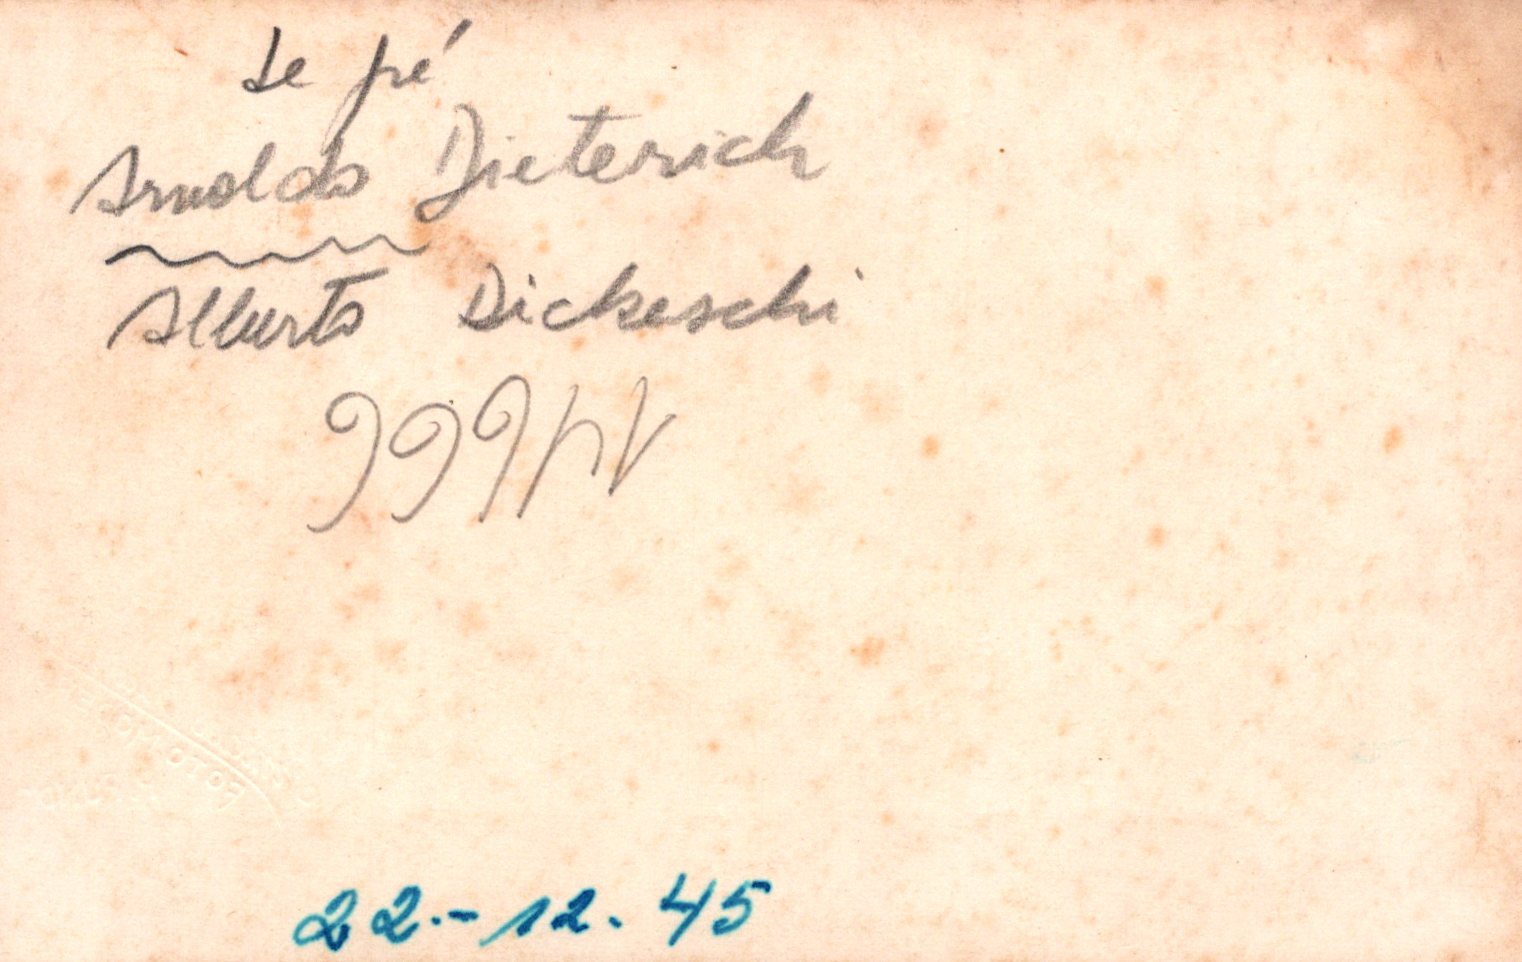 de pé
Arnoldo Dieterich
Alberto Dickeschi
22.-12.45